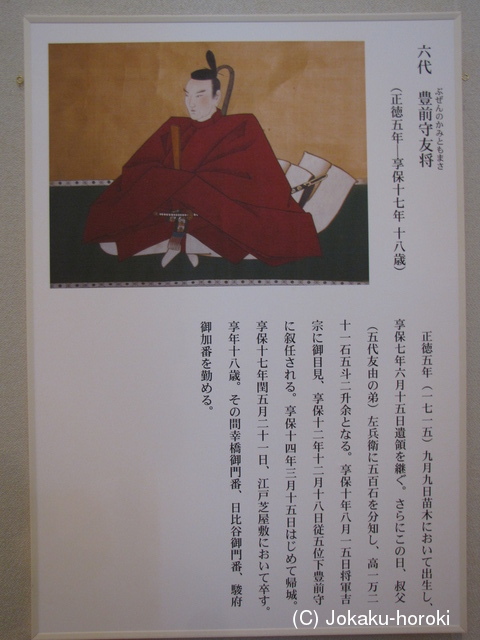 六代　豊前守友将
ぶぜんのかみともまさ
（正徳五年―享保十七年 十八歳）
正徳五年（一七一五）九月九日苗木において出生し、
享保七年六月十五日遺領を継ぐ。さらにこの日、叔父
（五代友由の弟）左兵衛に五百石を分知し、高一万二
十一石五斗二升余となる。享保十年八月一五日将軍吉
宗に御目見、享保十二年十二月十八日従五位下豊前守
に叙任される。享保十四年三月十五日はじめて帰城。
享保十七年閏五月二十一日、江戸芝屋敷において卒す。
享年十八歳。その間幸橋御門番、日比谷御門番、駿府
御加番を勤める。
(C) Jokaku-horoki